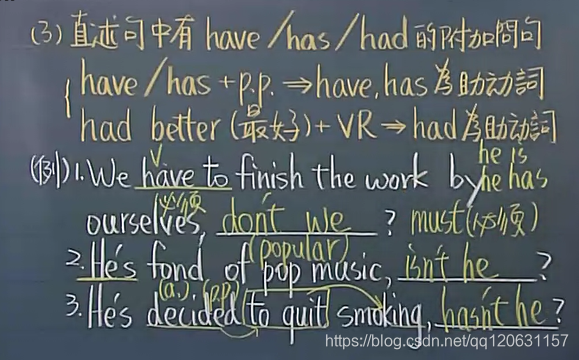 (3) 直述句中有 have/has/had 的附加問句
have/has + p.p. ⇒ have, has 為助动詞
had better (最好) + VR ⇒ had 為助动詞
V
he is
(例) 1. We have to finish the work by he has
必須
ourselves, don't we ? must (必須)
(popular)
2. He's fond of pop music, isn't he ?
(a.) (p.p.)
3. He's decided to quit smoking, hasn't he ?
https://blog.csdn.net/qq120631157